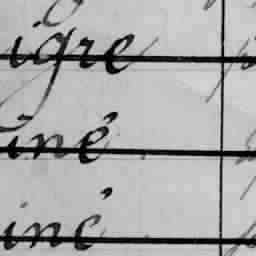 igre
iné
iné